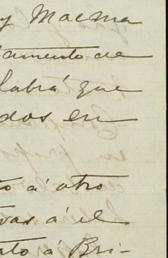 y Macma
amento de
labrá que
dos en
to á otro
vas á el
ato a Bri-